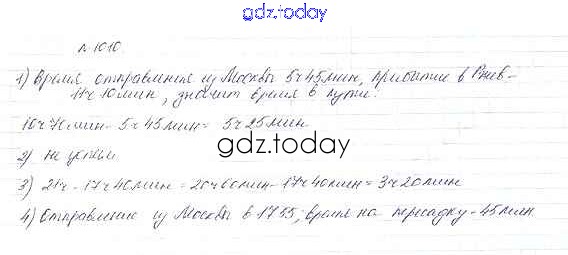 gdz.today
№ 1010
1) Время отправления из Москвы 5ч 45мин, прибытие в Ржев -
11ч 10мин, значит время в пути:
10ч 70мин - 5ч 45мин = 5ч 25мин
gdz.today
2) не успеем
3) 21ч - 17ч 40мин = 20ч 60мин - 17ч 40мин = 3ч 20мин
4) Отправление из Москвы в 17 55, время на пересадку - 45мин
gdz.today